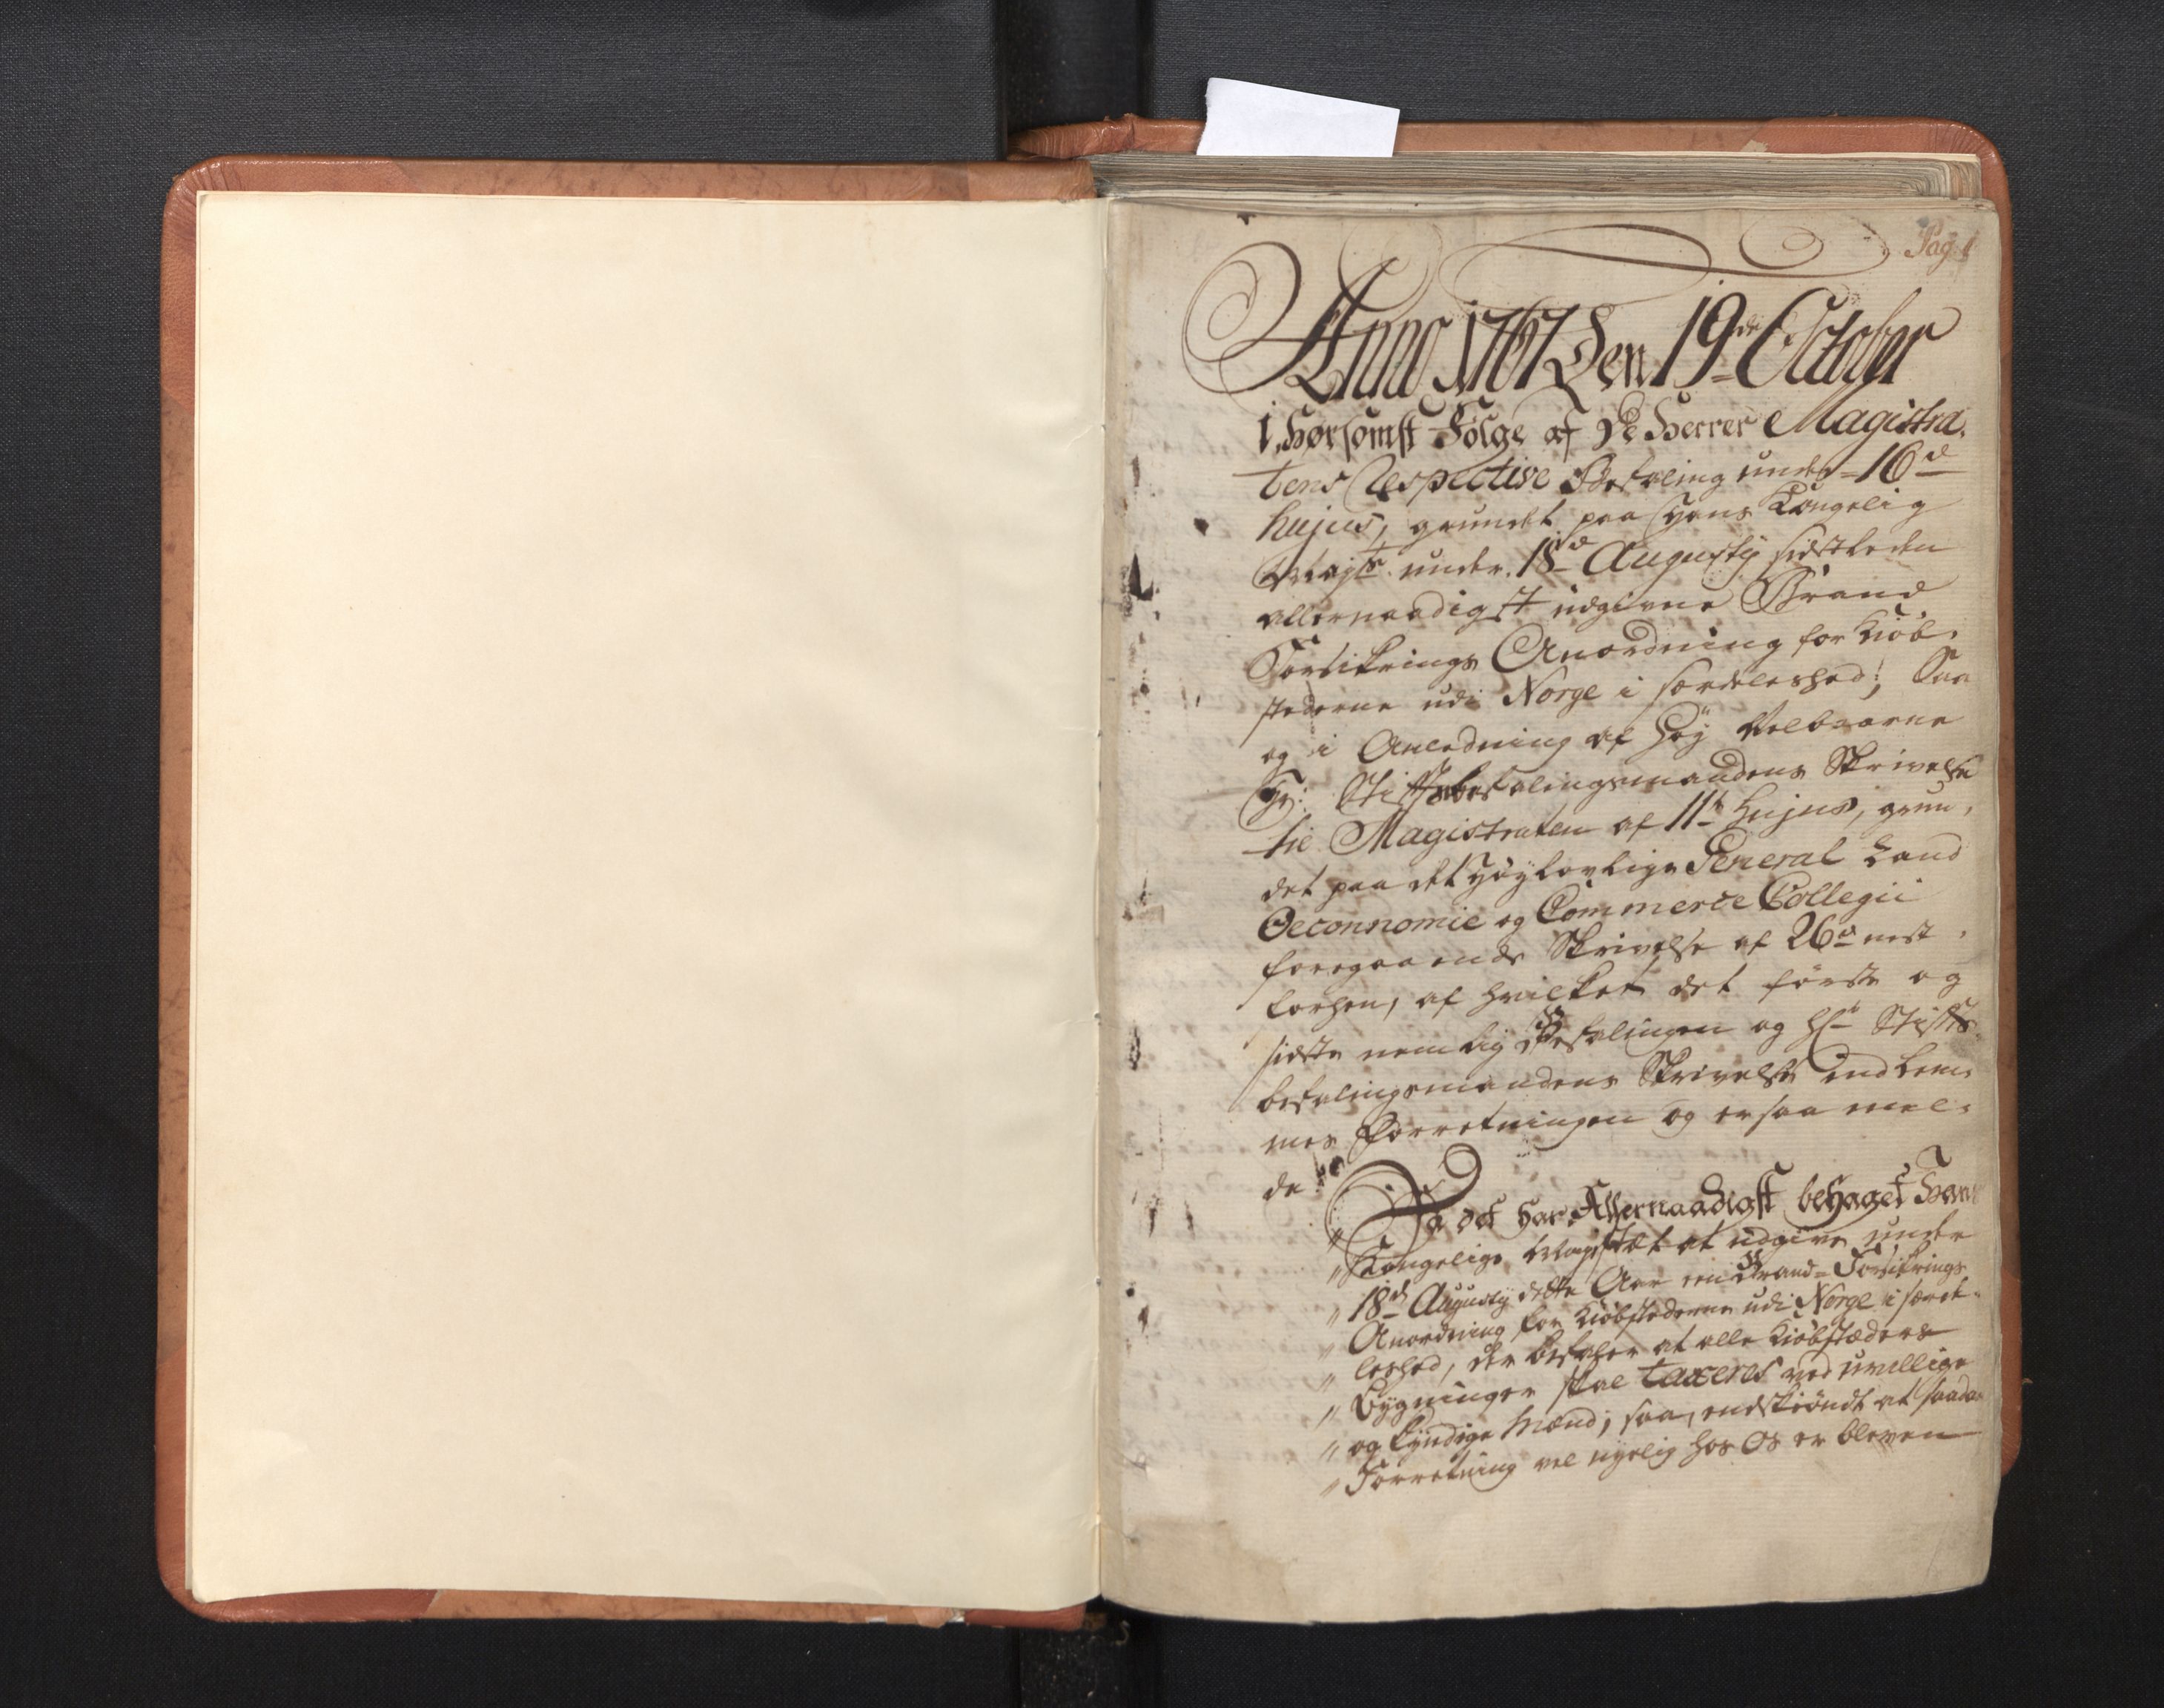 Pag: 1
Anno 1767 Den 19de October
i hørsomst Følge af De Herrer Magistra,
tens Respective Befaling under 16de
hujus, grundet paa Hans Kongelig
Mayts. under 18de Augusty sidstleden
allernaadigst udgivne Brand
Forsikrings Anordning for Kiøb,
stederne udi Norge i særdeleshed; Saa
og i Anledning af Høy Velbaarne
Hr: Stiftsbefalingsmandens Skrivelse
til Magistraten af 11te hujus, grun,
det paa det Høylovlige General Land
Oeconnomie og Commerce Collegii
foregaaende Skrivelse af 26de nest
forhen, af hvilket det første og
sidste nemlig Befalingen og Hr. Stifts,
befalingsmandens Skrivelse indlem,
mes Forretningen og er saa mel,
de:
" Da det har Allernaadigst behaget Hans
" Kongelige Mayestæt at udgive under
" 18de Augusty dette Aar een Brand-Forsikrings
" Anordning for Kiøbstederne udi Norge i særde,
" leshed, der befaler at alle Kiøbstæders
" Bygninger skal taxeres ved uvillige
" og kyndige Mænd; saa, endskiøndt at saadan
" Forretning vel nyelig hos Os er bleven